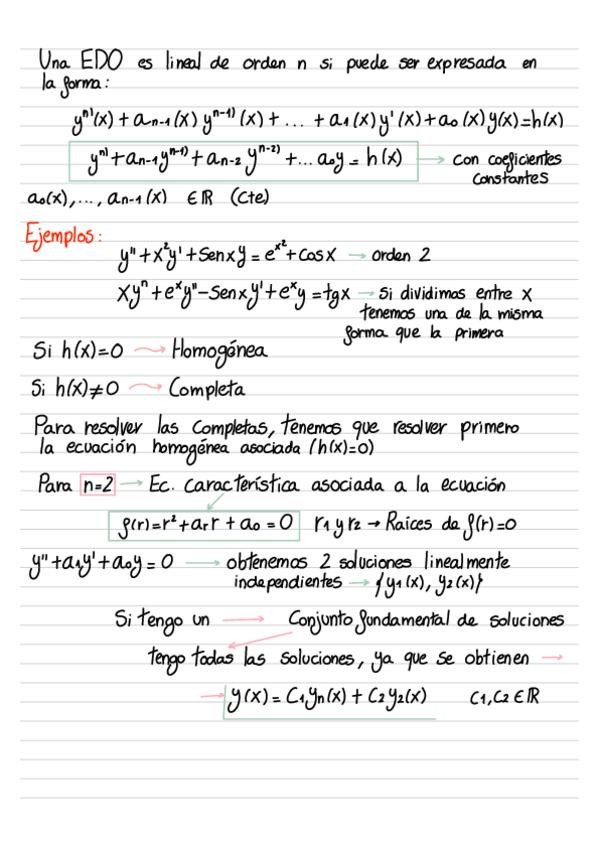 Una EDO es lineal de orden n si puede ser expresada en
la forma:
yⁿ⁾(x) + aₙ₋₁(x) yⁿ⁻¹⁾(x) + ... + a₁(x) y'(x) + a₀(x) y(x) = h(x)
yⁿ⁾ + aₙ₋₁yⁿ⁻¹⁾ + aₙ₋₂ yⁿ⁻²⁾ + ... a₀y = h(x) → con coeficientes
constantes
a₀(x), ..., aₙ₋₁(x) ∈ ℝ (cte)
Ejemplos:
y'' + x²y' + Senxy = eˣ² + cosx → orden 2
xyⁿ + eˣy'' - Senxy' + eˣy = tgx → si dividimos entre x
tenemos una de la misma
forma que la primera
Si h(x)=0 → Homogénea
Si h(x)≠0 → Completa
Para resolver las completas, tenemos que resolver primero
la ecuación homogénea asociada (h(x)=0)
Para n=2 → Ec. característica asociada a la ecuación
f(r)=r²+aᵣr + a₀ = 0 r₁ y r₂ → Raíces de f(r)=0
y''+a₁y'+a₀y = 0 → obtenemos 2 soluciones linealmente
independientes → {y₁(x), y₂(x)}
Si tengo un → Conjunto fundamental de soluciones
tengo todas las soluciones, ya que se obtienen →
→ y(x) = C₁yₙ(x) + C₂y₂(x) C₁,C₂ ∈ ℝ